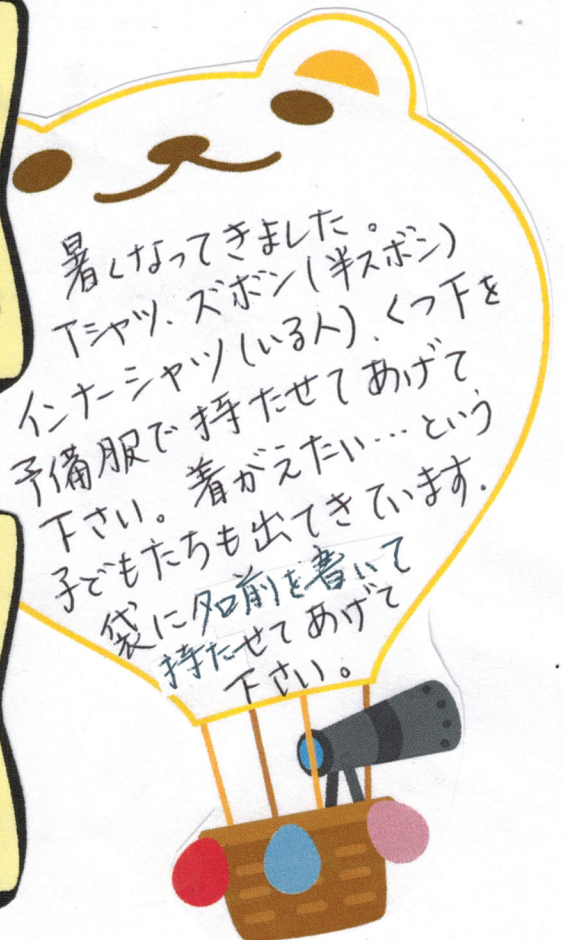 暑くなってきました。
Tシャツ、ズボン(半ズボン)
インナーシャツ(いる人)、くつ下を
予備服で持たせてあげて
下さい。着がえたい…という
子どもたちも出てきています。
袋に名前を書いて
持たせてあげて
下さい。